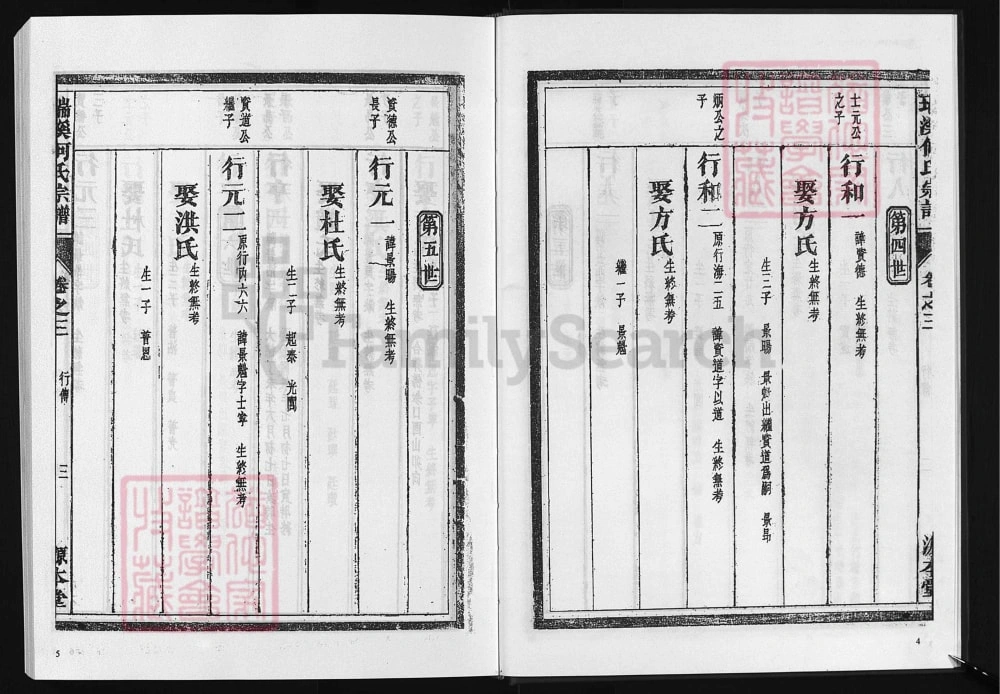 第四世
士元公
之子
行和一
諱資德 生終無考
娶方氏
生終無考
生三子 景暘 景魁出繼資道爲嗣 景昂
炳公之
子
行和二
原行海二五 諱資道字以道 生終無考
娶方氏
生終無考
繼一子 景魁
卷之三
源本堂
4
第五世
資德公
長子
行元一
諱景暘 生終無考
娶杜氏
生終無考
生二子 起泰 光閏
資道公
繼子
行元二
原行四六六 諱景魁字士寧 生終無考
娶洪氏
生終無考
生一子 普恩
瑞溪何氏宗譜
卷之三
行傳
三
源本堂
5
FamilySearch